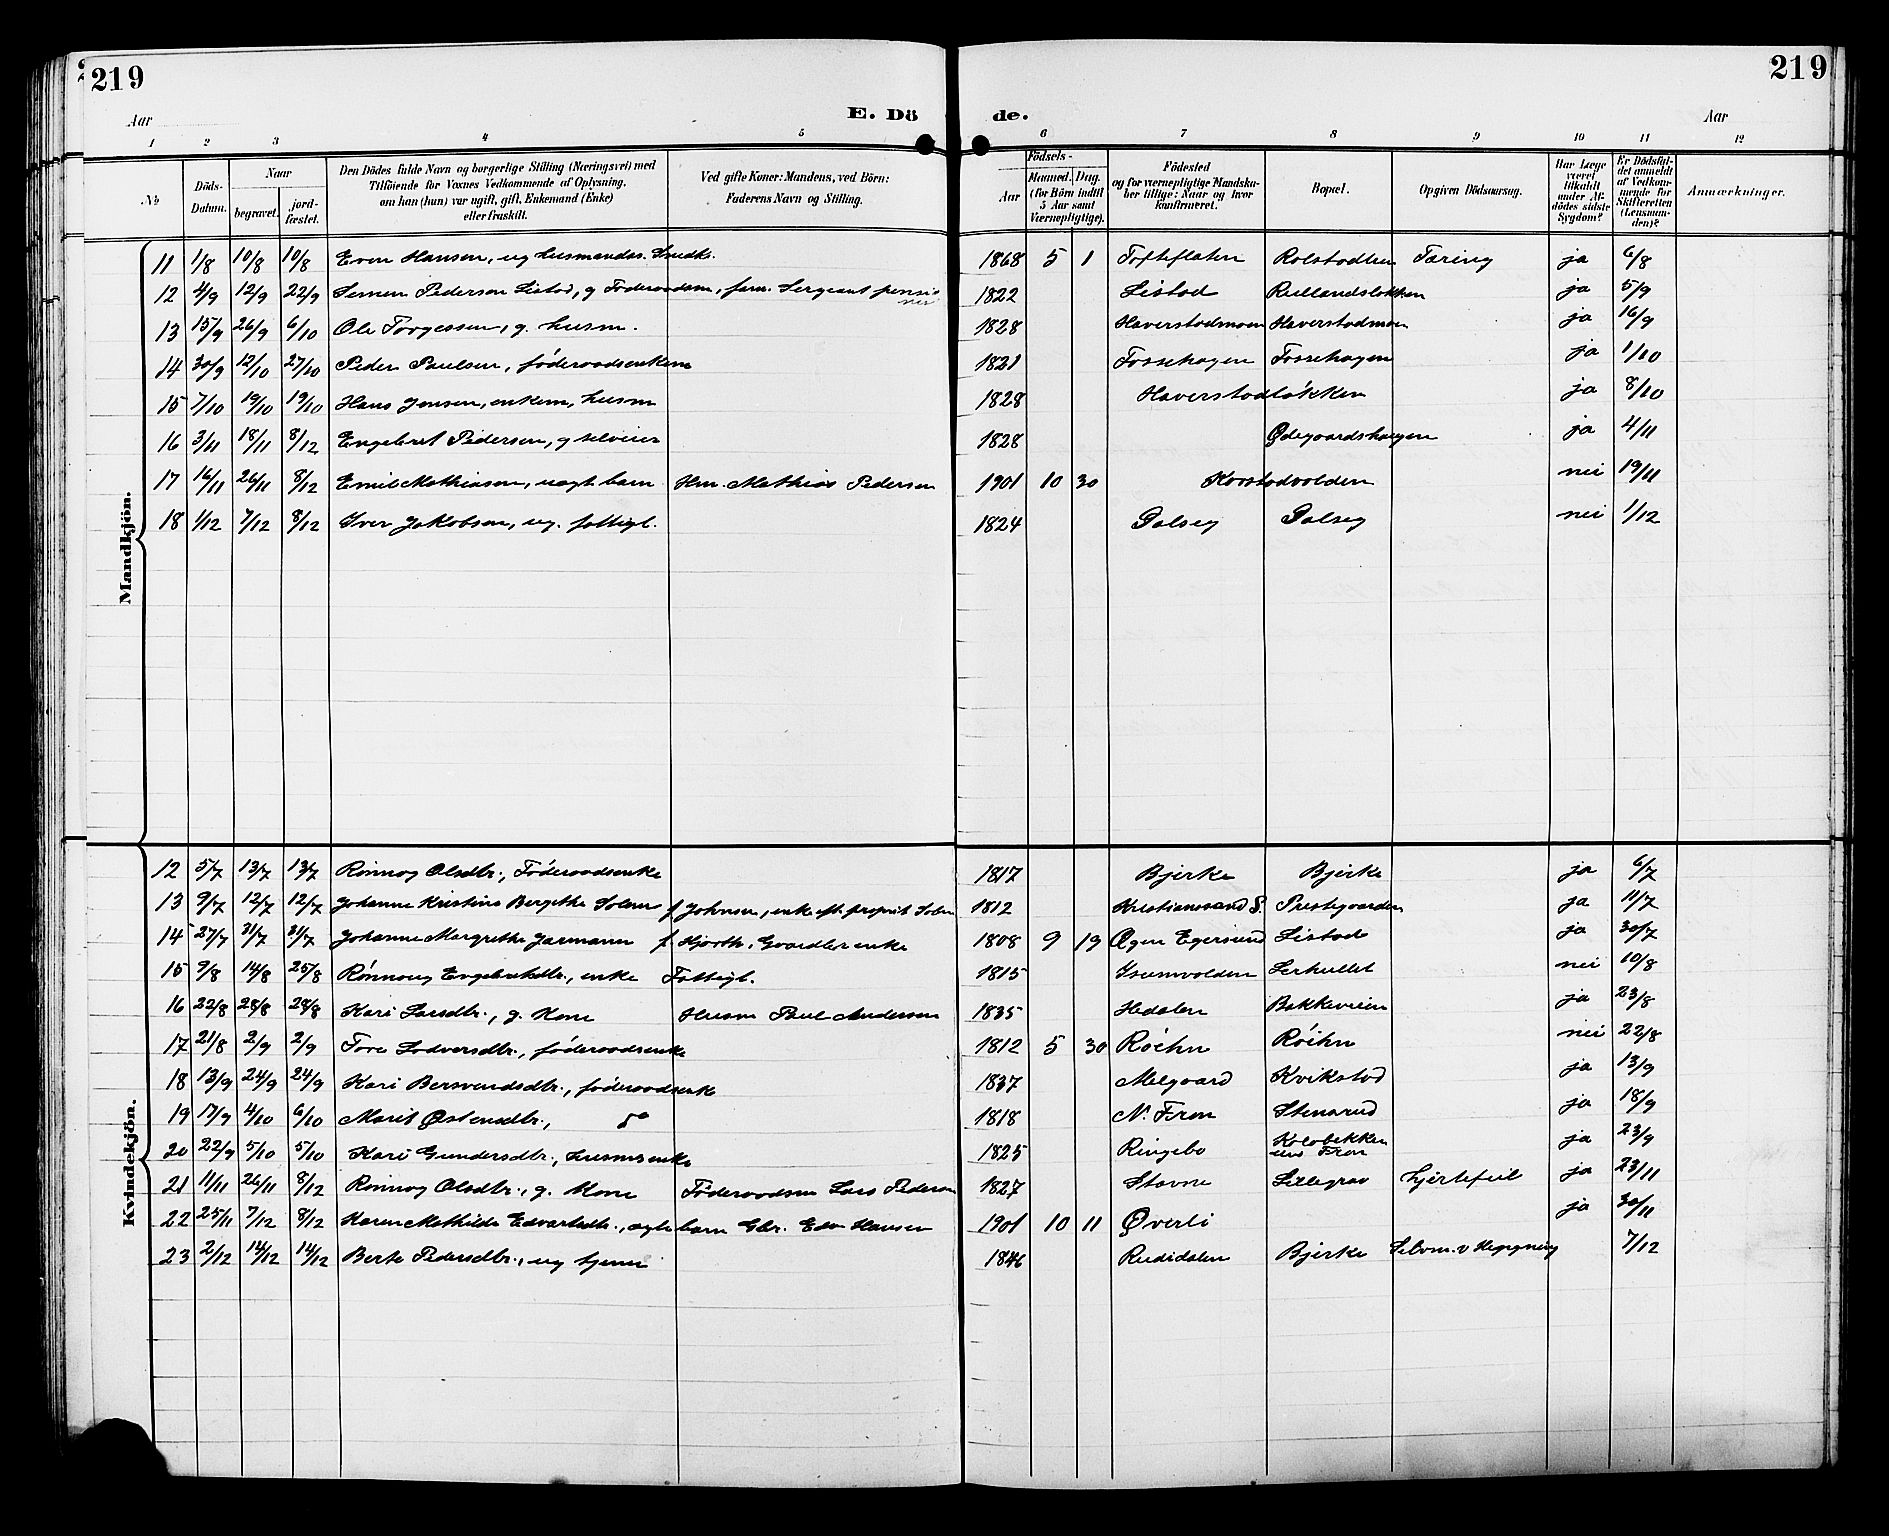 219
219
E. Dö de.
Aar
Aar
1 2 3 4 5 6 7 8 9 10 11 12
No
Döds-Datum.
Naar
begravet.
jordfæstet.
Den Dödes fulde Navn og borgerlige Stilling (Næringsvei) med Tilföiende for Voxnes Vedkommende af Oplysning, om han (hun) var ugift, gift, Enkemand (Enke) eller fraskilt.
Ved gifte Koner: Mandens, ved Börn: Faderens Navn og Stilling.
Födsels-
Aar
Maaned. Dag.
(for Börn indtil 5 Aar samt Værnepligtige).
Födested og for værnepligtige Mandskaber tillige: Naar og hvor konfirmeret.
Bopæl.
Opgiven Dödsaarsag.
Har Læge været tilkaldt under Afdödes sidste Sygdom?
Er Dödsfaldet anmeldt af Vedkommende for Skifteretten (Lensmanden)?
Anmærkninger.
Mandkjön.
11 1/8 10/8 10/8 Even Hansen, ug husmandss. Snedk. 1868 5 1 Tofteflaten Rolstadlien Tæring ja 6/8
12 4/9 12/9 22/9 Simen Pedersen Listad, g Föderaadsm, form. Sergeant pensio nist 1822 Listad Rullandslökken ja 5/9
13 15/9 26/9 6/10 Ole Torgersen, g. husm. 1828 Haverstadmoen Haverstadmoen ja 16/9
14 30/9 12/10 27/10 Peder Paulsen, föderaadsenkem 1821 Fossehagen Fossehagen ja 1/10
15 7/10 19/10 19/10 Hans Jensen, enkem, husm 1828 Haverstadløkken ja 8/10
16 3/11 18/11 8/12 Engebret Pedersen, g selveier 1828 Ødegaardshaugen ja 4/11
17 16/11 26/11 8/12 Emil Mathiasen, uægt barn Hm. Mathias Pedersen 1901 10 30 Korstadvolden nei 19/11
18 1/12 7/12 8/12 Iver Jakobsen, ug. fattigl. 1824 Galseg Galseg nei 1/12
Kvindekjön.
12 5/7 13/7 13/7 Rönnog Olsdtr., Föderaadsenke 1817 Bjerke Bjerke ja 6/7
13 9/7 12/7 12/7 Johanne Kristine Bergithe Solem f Johnsen, enke eft. propriet Solem 1812 Kristianssand S. Prestegaarden ja 11/7
14 27/7 31/7 31/7 Johanne Margrethe Jarmann f Hjorth, Gaardbr enke 1808 9 19 Øgne Egersund Listad ja 30/7
15 9/8 14/8 25/8 Rönnaug Engebretsdtr., enke Fattigl. 1815 Isumvolden Lerhullet nei 10/8
16 22/8 28/8 28/8 Kari Larsdtr., g. Kone Husm Paul Andersen 1835 Hedalen Bakkeveien ja 23/8
17 21/8 2/9 2/9 Tore Lodversdtr., föderaadsenke 1812 5 30 Röehn Röehn nei 22/8
18 13/9 24/9 24/9 Kari Bersvendsdtr., föderaadsenk 1837 Melgaard Kvikstad ja 13/9
19 17/9 4/10 6/10 Marit Østensdtr., do 1818 N. Fron Stenarud ja 18/9
20 22/9 5/10 5/10 Kari Gundersdtr., husmsenke 1825 Ringebo Kolobekken Fron ja 23/9
21 11/11 26/11 8/12 Rönnog Olsdtr., g. Kone Föderaadsm Lars Pedersen 1827 Stavne Lillegrav Hjertefeil ja 23/11
22 25/11 7/12 8/12 Karen Mathilde Edvartsdtr., ægte barn Gbr. Edv Hansen 1901 10 11 Øverli ja 30/11
23 2/12 14/12 14/12 Berte Pedersdtr., ug tjener 1846 Rudidalen Bjerke Selvm. v Hengning 7/12